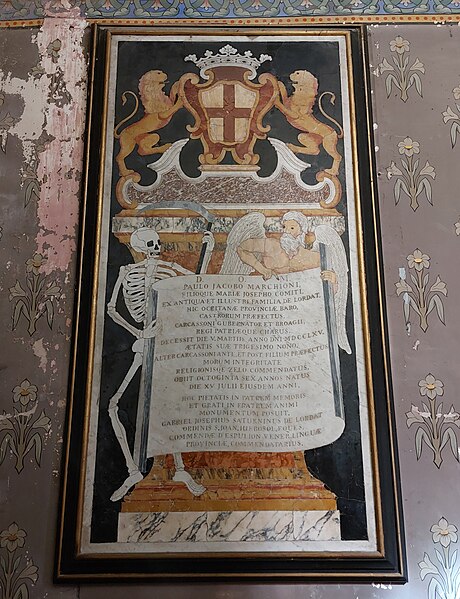 D. O. M.
PAULO JACOBO MARCHIONI,
FILIOQUE MARIÆ JOSEPHO COMITI,
EX ANTIQUA ET ILLUSTRI FAMILIA DE LORDAT,
NIC OCCITANÆ PROVINCIÆ BARO,
CASTRORUM PRÆFECTUS,
CARCASSONI GUBERNATOR ET
REGI PATRIÆQUE CHARUS.
DECESSIT DIE V. MARTIIS, ANNO DNI MDCCLXV.
ÆTATIS SUÆ TRIGESIMO NONO.
ALTER CARCASSONI ANTE ET POST FILIUM PRÆFECTUS
MORUM INTEGRITATE
RELIGIONISQUE ZELO COMMENDATUS,
OBIIT OCTOGINTA SEX ANNOS NATUS
DIE XV JULII EJUSDEM ANNI.
HOC PIETATIS IN PATREM MEMORIS
ET GRATI IN FRATREM ANIMI
MONUMENTUM POSUIT,
GABRIEL JOSEPHUS SATURNINUS DE LORDAT
ORDINIS S. JOAN. HIEROSOL. EQUES,
COMMENDÆ D'ESPULION VENER. LINGUÆ
PROVINCIÆ, COMMENDATARIUS.